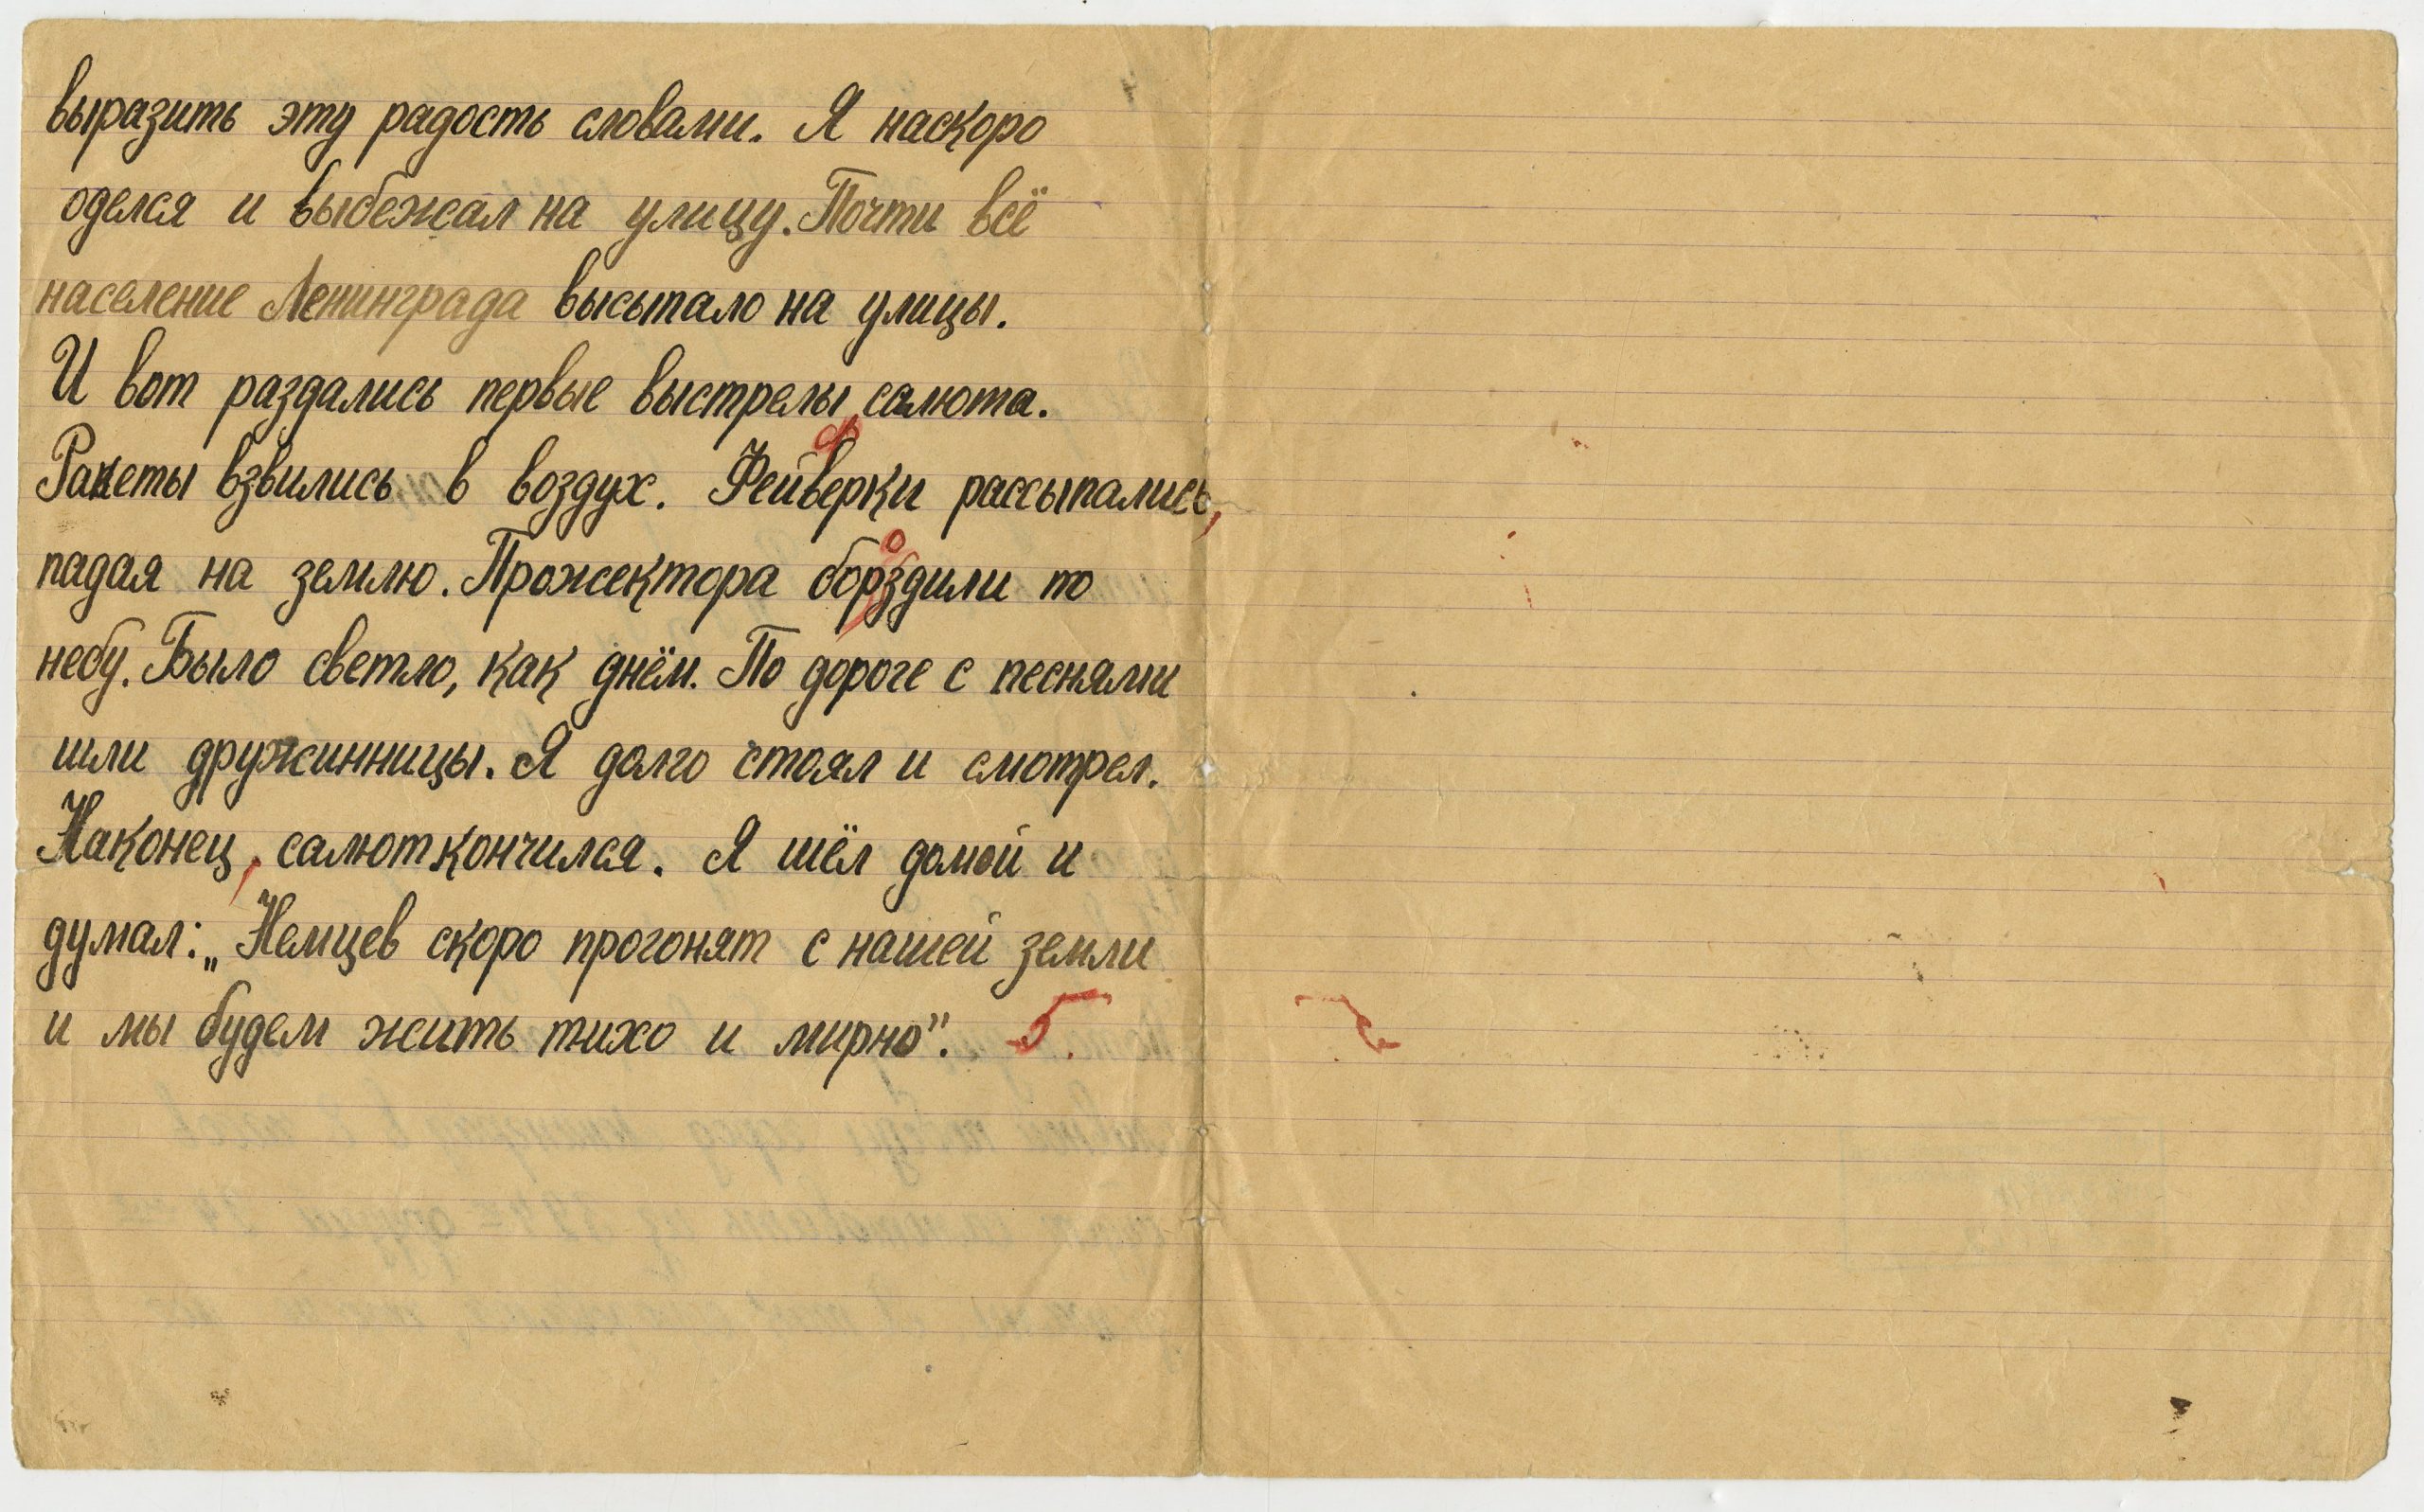 выразить эту радость словами. Я наскоро
оделся и выбежал на улицу. Почти всё
население Ленинграда высыпало на улицы.
И вот раздались первые выстрелы салюта.
Ракеты взвились в воздух. Фейверки рассыпались,
падая на землю. Прожектора борздили по
небу. Было светло, как днём. По дороге с песнями
шли дружинницы. Я долго стоял и смотрел.
Наконец, салют кончился. Я шёл домой и
думал: „Немцев скоро прогонят с нашей земли
и мы будем жить тихо и мирно". 5